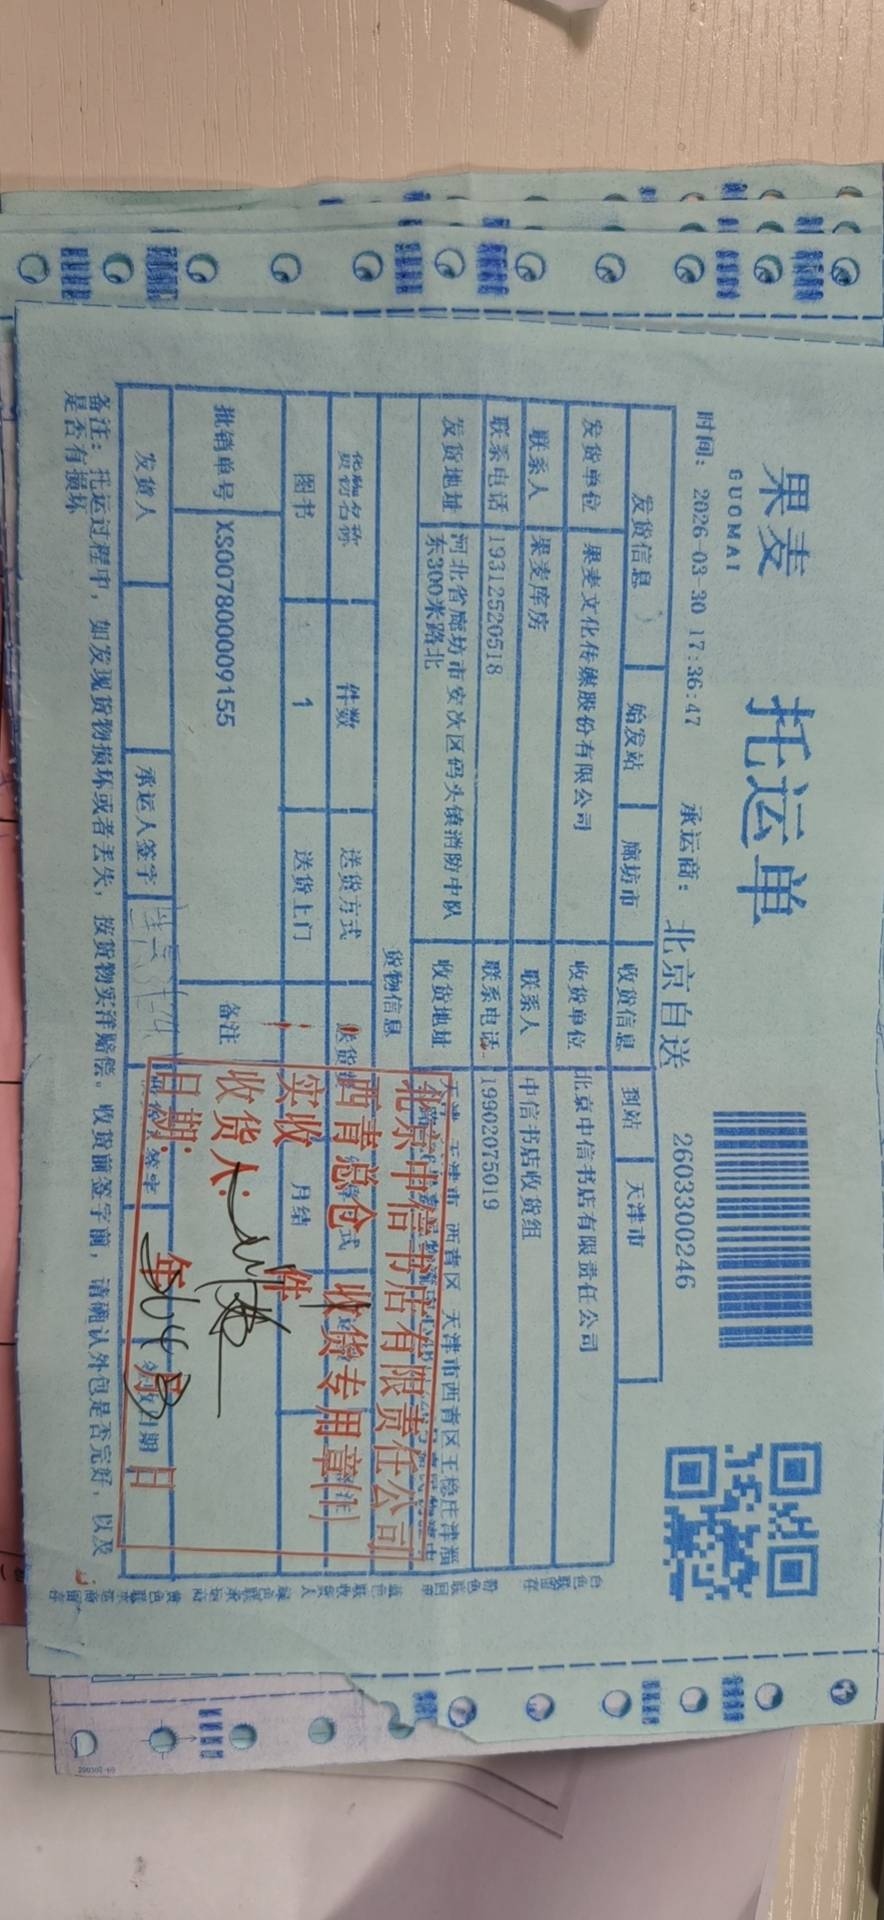 果麦
GUOMAI
托运单
时间: 2026-03-30 17:36:47 承运商: 北京自送 2603300246
发货信息 始发站 廊坊市 收货信息 到站 天津市
发货单位 果麦文化传媒股份有限公司 收货单位 北京中信书店有限责任公司
联系人 果麦库房 联系人 中信书店收货组
联系电话 19312520518 联系电话 19902075019
发货地址 河北省廊坊市安次区码头镇消防中队东300米路北 收货地址 天津市 西青区 天津市西青区王稳庄津淄
货物信息
货物名称 件数 送货方式
图书 1 送货上门 月结
批销单号 XS007800009155 备注
发货人 承运人签字 签字 日期
备注: 托运过程中, 如发现货物损坏或者丢失, 按货物实洋赔偿。收货前签字前, 请确认外包是否完好, 以及
是否有损坏
北京中信书店有限责任公司
西青总仓 收货专用章(1)
实收 件
收货人:
日期: 年 月 日